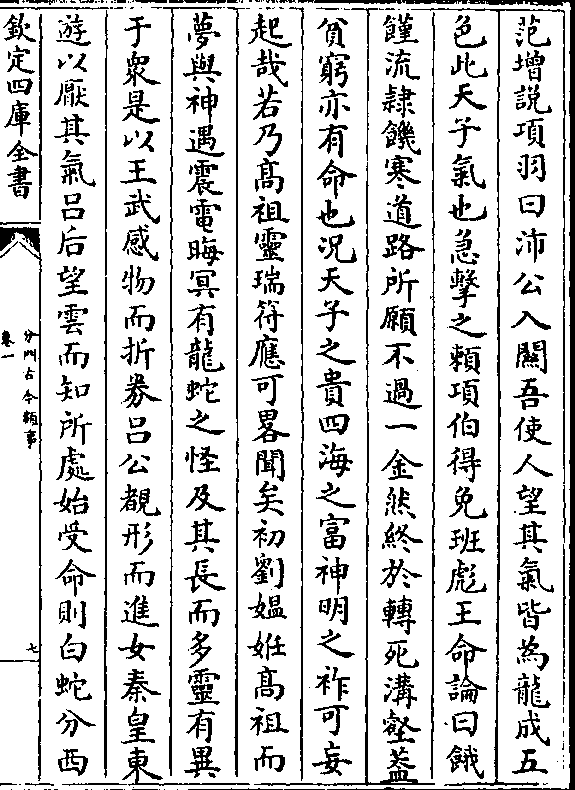 范增説項羽曰沛公入關吾使人望其氣皆為龍成五
色此天子氣也急擊之賴項伯得免班彪王命論曰餓
饉流隷饑寒道路所願不過一金然終於轉死溝壑葢
貧窮亦有命也况天子之貴四海之富神明之祚可妄
起哉若乃髙祖靈瑞符應可畧聞矣初劉媪姙髙祖而
夢與神遇震電晦冥有龍蛇之怪及其長而多靈有異
于衆是以王武感物而折券吕公覩形而進女秦皇東
遊以厭其氣吕后望雲而知所處始受命則白蛇分西
欽定四庫全書
分門古今類事
卷一
七